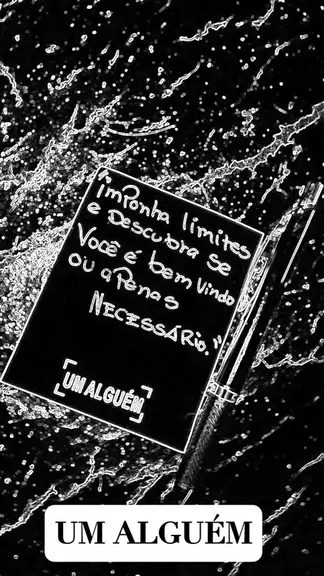 "imponha limites
e Descubra se
Você é bem vindo
ou apenas
Necessário."
UM ALGUÉM
UM ALGUÉM